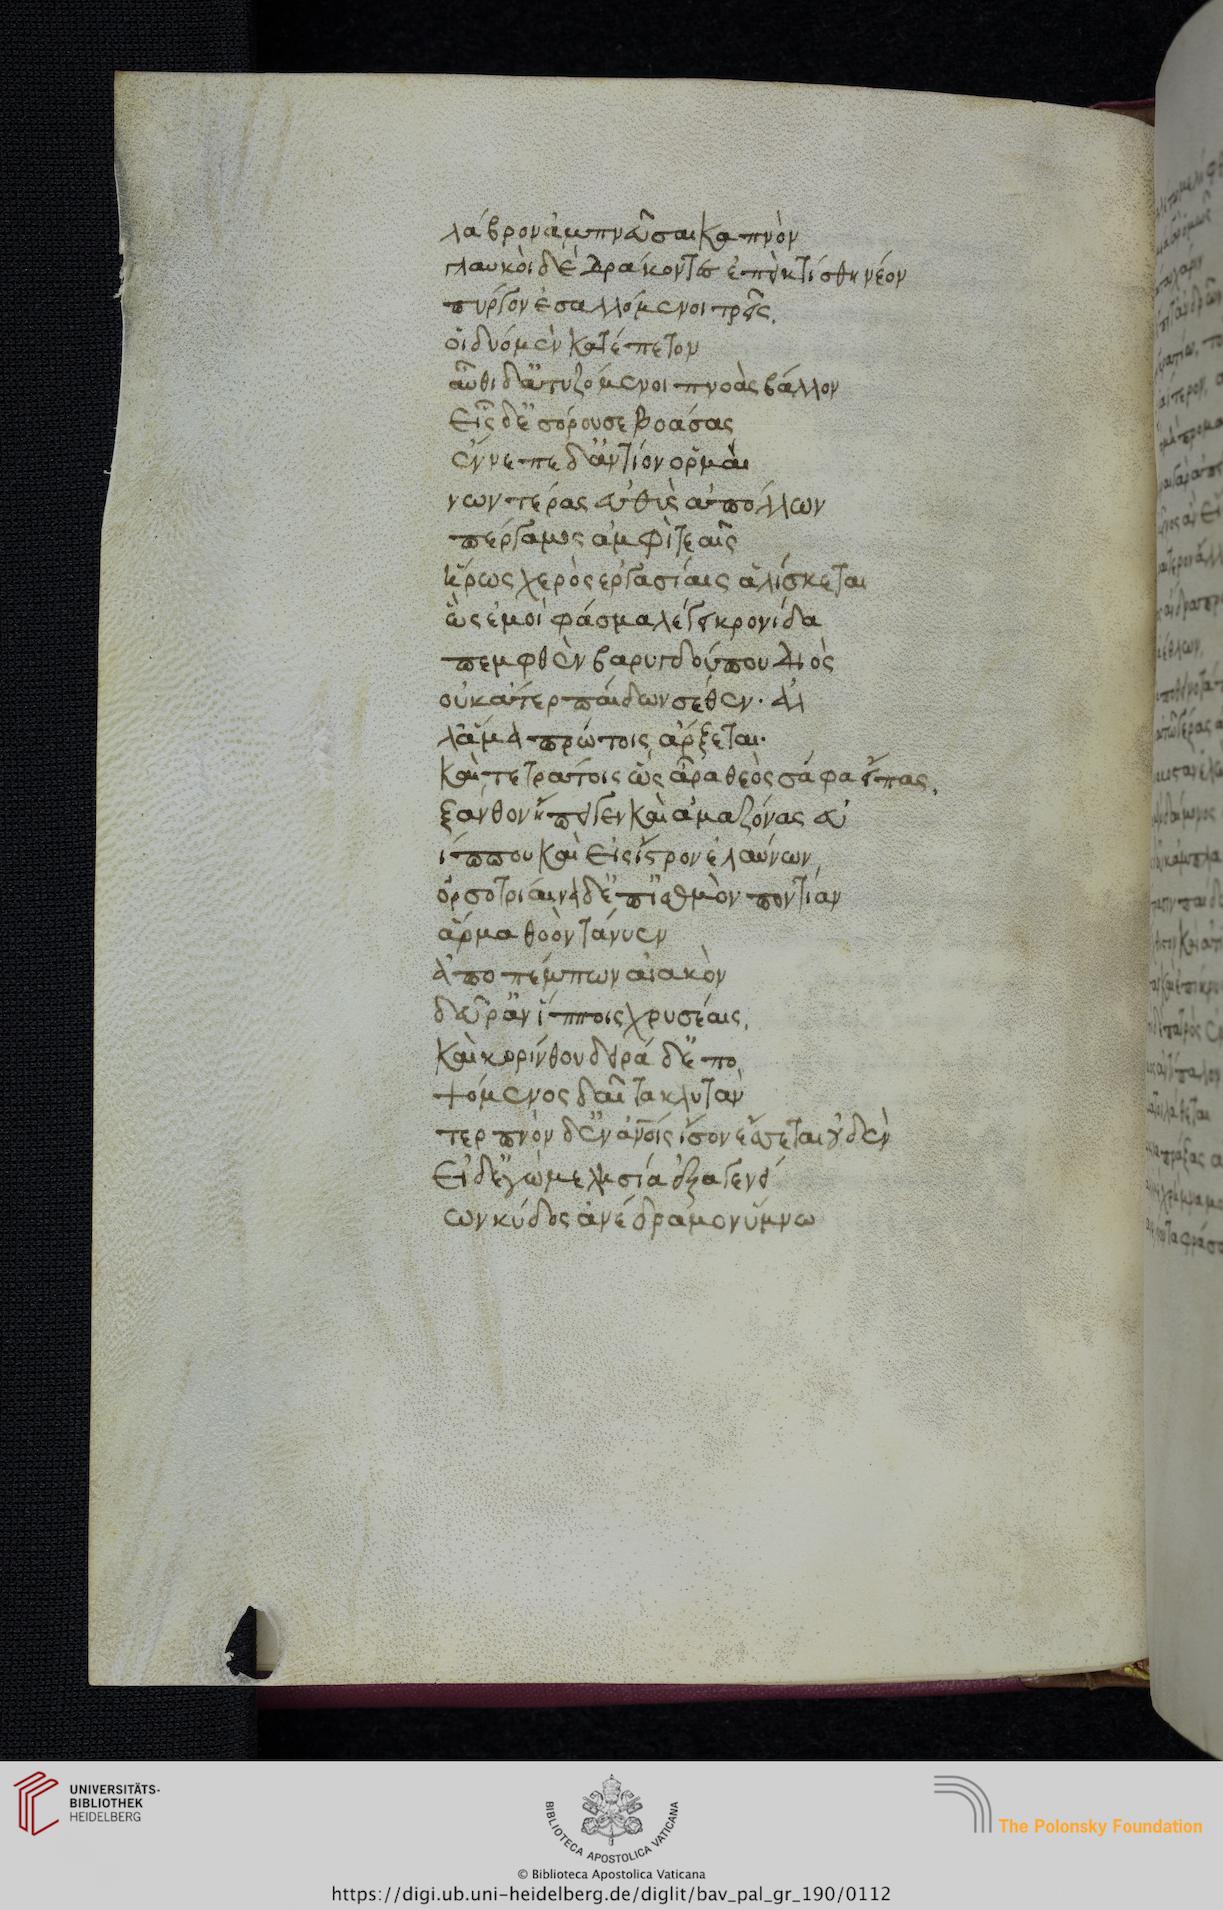 λάβρον ἀμπνεῦσαι καπνὸν
γλαυκοὶ δὲ δράκοντες ἐπεὶ κτίσθη νέον
πύργον ἐσαλλόμενοι τρεῖς,
οἱ δύο μὲν κατέπετον
αὖθι δ' ἀτυζόμενοι πνοὰς βάλλον
εἷς δ' ἐσόρουσε βοάσας
ἔννεπε δ' ἀντίον ὁρμαί
νων τέρας εὐθὺς ἀπόλλων
πέργαμος ἀμφὶ τεαῖς
ἥρως χερὸς ἐργασίαις ἁλίσκεται
ὣς ἐμοὶ φάσμα λέγει κρονίδα
πεμφθὲν βαρυγδούπου διὸς
οὐκ ἄτερ παίδων σέθεν· ἀλ
λ' ἅμα πρώτοις ἄρξεται·
καὶ τετράτοις ὣς ἄρα θεὸς σάφα εἴπας,
ξάνθον ἤπειγεν καὶ ἀμαζόνας εὐ
ίππου καὶ εἰς ἴστρον ἐλαύνων,
ὀρσοτρίαινα δ' ἐπ' ἰσθμὸν ποντίαν
ἅρμα θοὸν τάνυεν
ἀποπέμπων αἰακὸν
δεῦρ' ἂν ἵπποις χρυσέαις,
καὶ κορίνθου δειράδ' ἐπο
ψόμενος δαῖτα κλυτὰν
τερπνὸν δ' ἐν ἀνοις ἴσον ἔσσεται οὐδὲν
εἰ δ' ἐγὼ μελησία ἐξ ἀγενεί
ων κύδος ἀνέδραμον ὕμνω
UNIVERSITÄTS-
BIBLIOTHEK
HEIDELBERG
BIBLIOTECA APOSTOLICA VATICANA
The Polonsky Foundation
© Biblioteca Apostolica Vaticana
https://digi.ub.uni-heidelberg.de/diglit/bav_pal_gr_190/0112